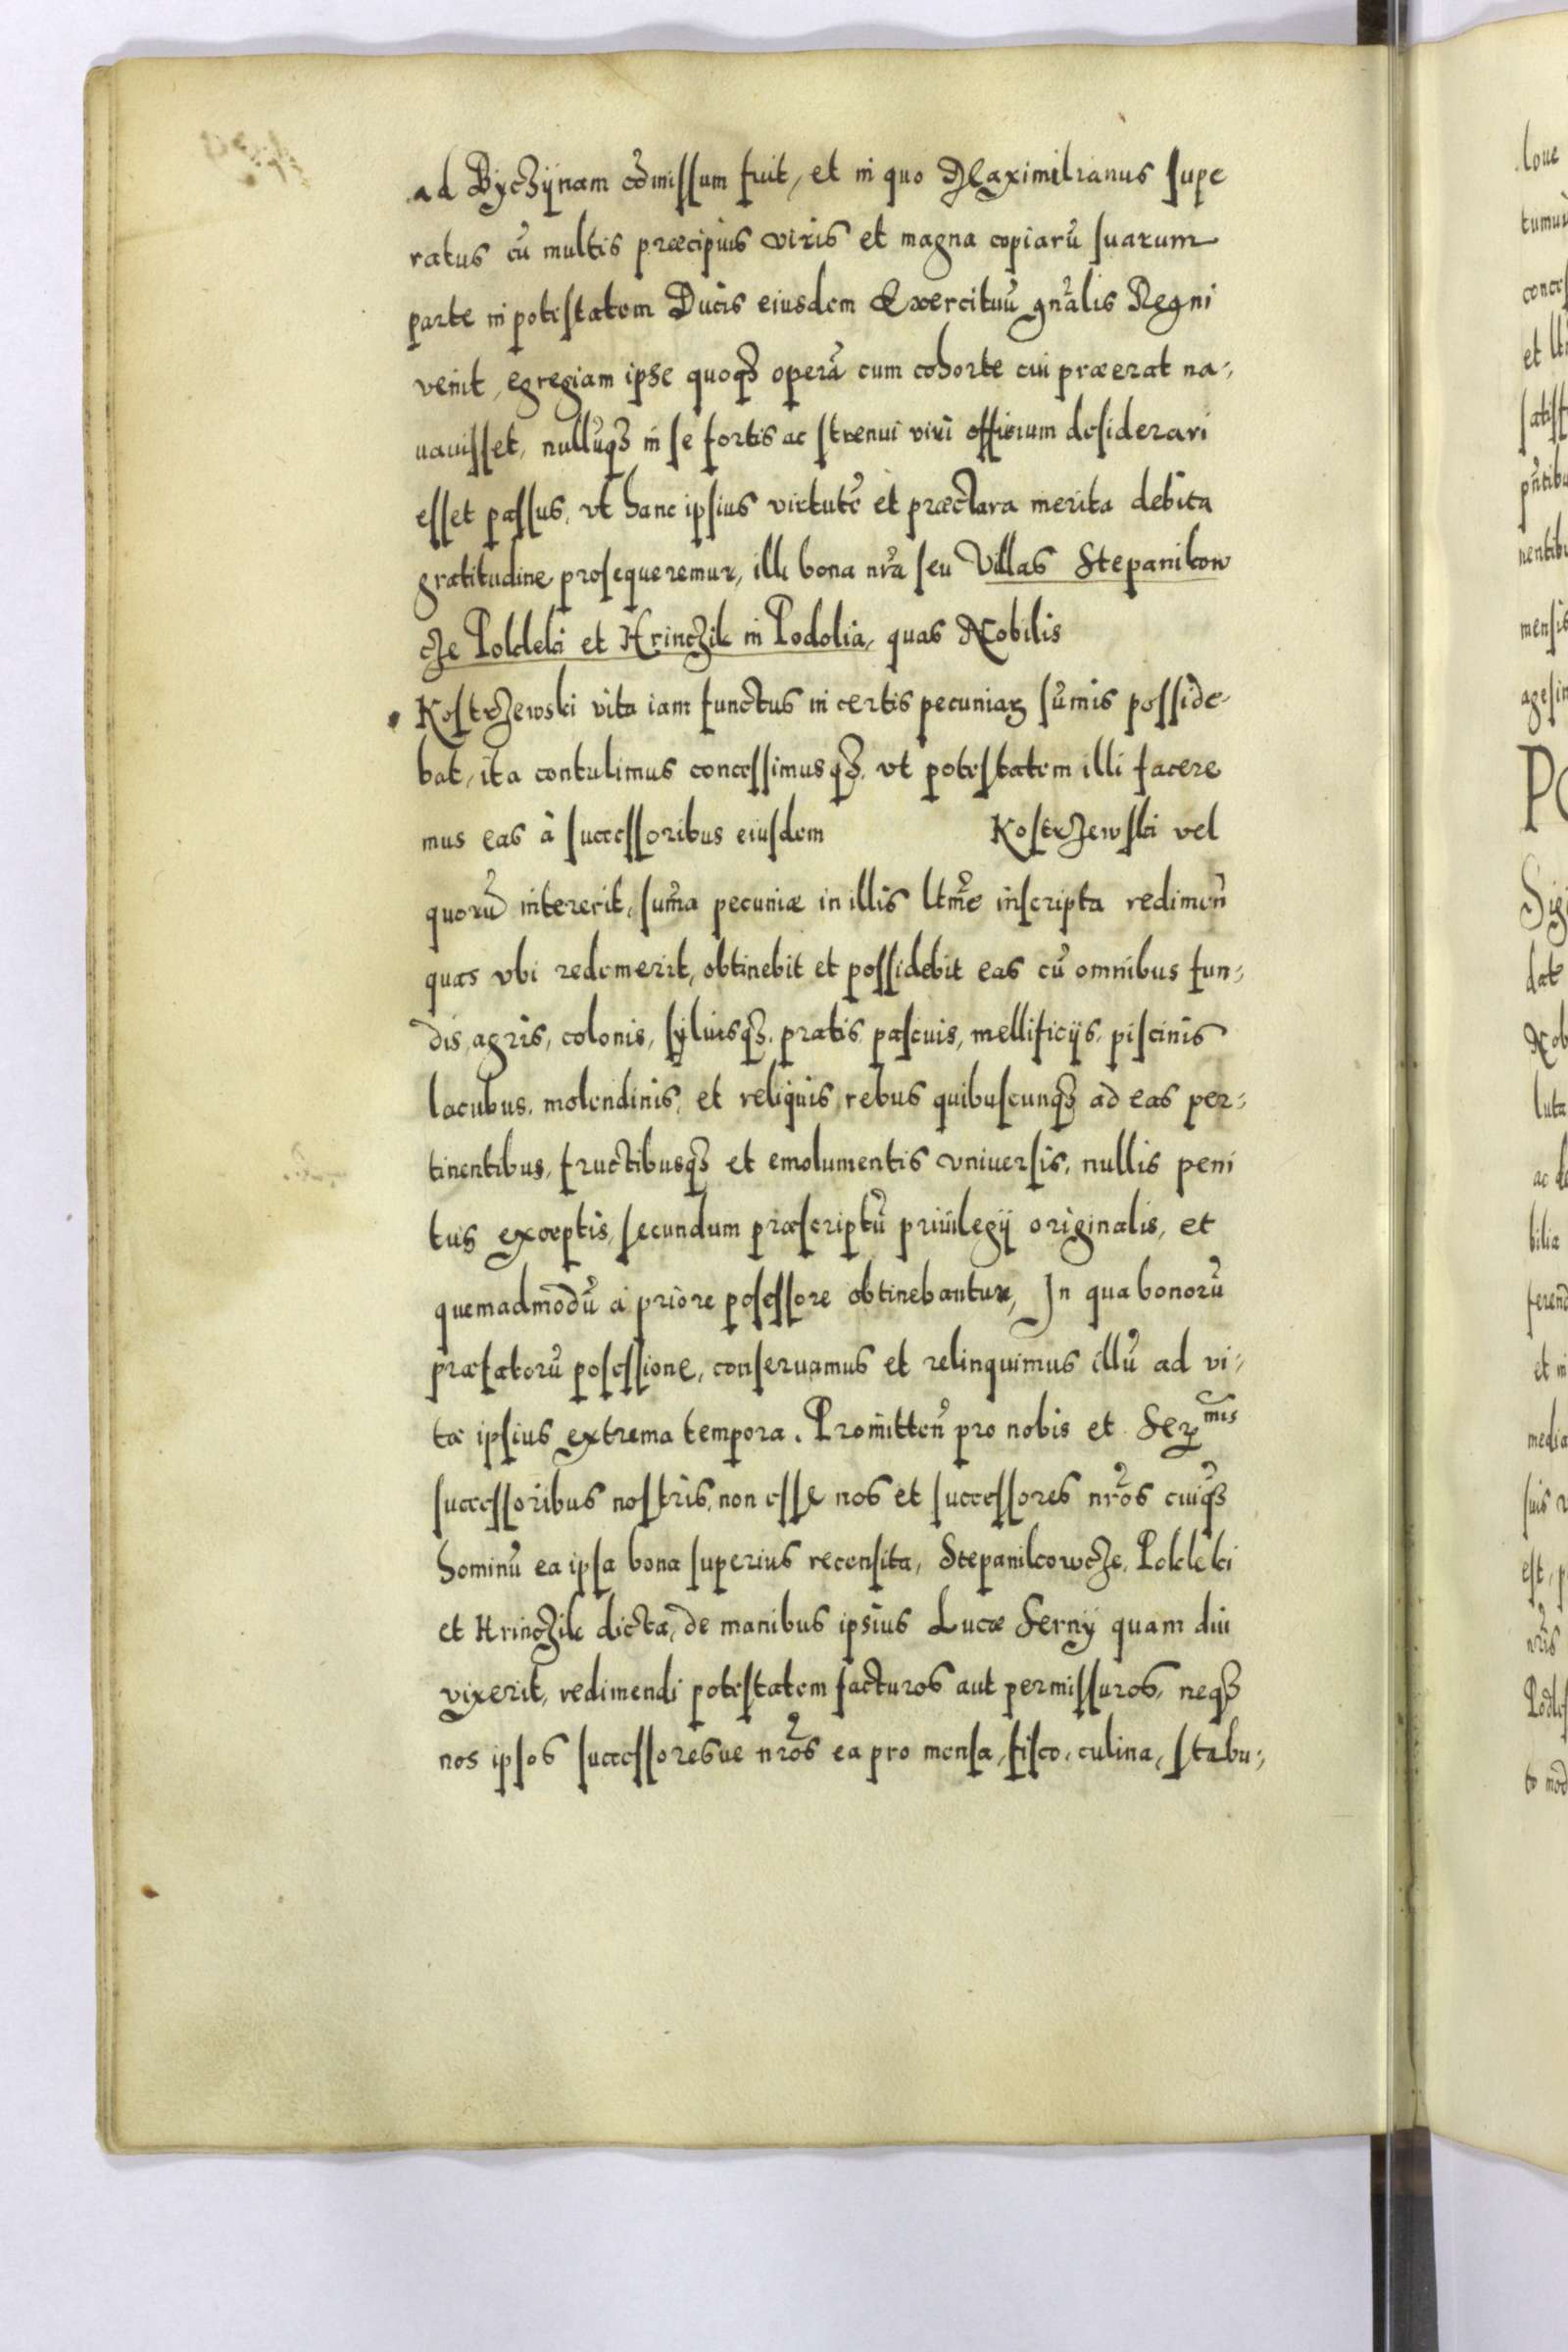 ad Byczynam cōmissum fuit, et in quo Maximilianus supe
ratus cū multis præcipuis viris et magna copiarū suarum
parte in potestatem Ducis eiusdem Exercituū gnālis Regni
venit, egregiam ipse quoqʒ operā cum cohorte cui præerat na-
uauisset, nullūqʒ in se fortis ac strenui viri officium desiderari
esset passus, vt hanc ipsius virtutē et præclara merita debita
gratitudine prosequeremur, illi bona nrā seu Villas Stepanikow
cze Polcleki et Hrinczik in Podolia, quas Nobilis
Kostrzewski vita iam functus in certis pecuniaꝝ sūmis posside-
bat, ita contulimus concessimusqʒ, vt potestatem illi facere
mus eas à successoribus eiusdem Kostrzewski vel
quorū intererit, sum̄a pecuniæ in illis ltmē inscripta redimen̄
quas vbi redemerit, obtinebit et possidebit eas cū omnibus fun-
dis, agris, colonis, sylvisqʒ, pratis, pascuis, mellificijs, piscinis
lacubus, molendinis, et reliquis rebus quibuscunqʒ ad eas per-
tinentibus, fructibusqʒ et emolumentis vniuersis, nullis peni
tus exceptis, secundum præscriptū priuilegij originalis, et
quemadmodū a priore possessore obtinebantur, In qua bonorū
præfatorū possessione, conseruamus et relinquimus illū ad vi-
tæ ipsius extrema tempora. Promitten̄ pro nobis et Serᵐⁱˢ
successoribus nostris, non esse nos et successores nrōs cuiqʒ
hominū ea ipsa bona superius recensita, Stepanikowcze, Polcleki
et Hrinczik dicta, de manibus ipsius Lucæ Serny quam diu
vixerit, redimendi potestatem facturos aut permissuros, neqʒ
nos ipsos successoresue nrōs ea pro mensa, fisco, culina, stabu-